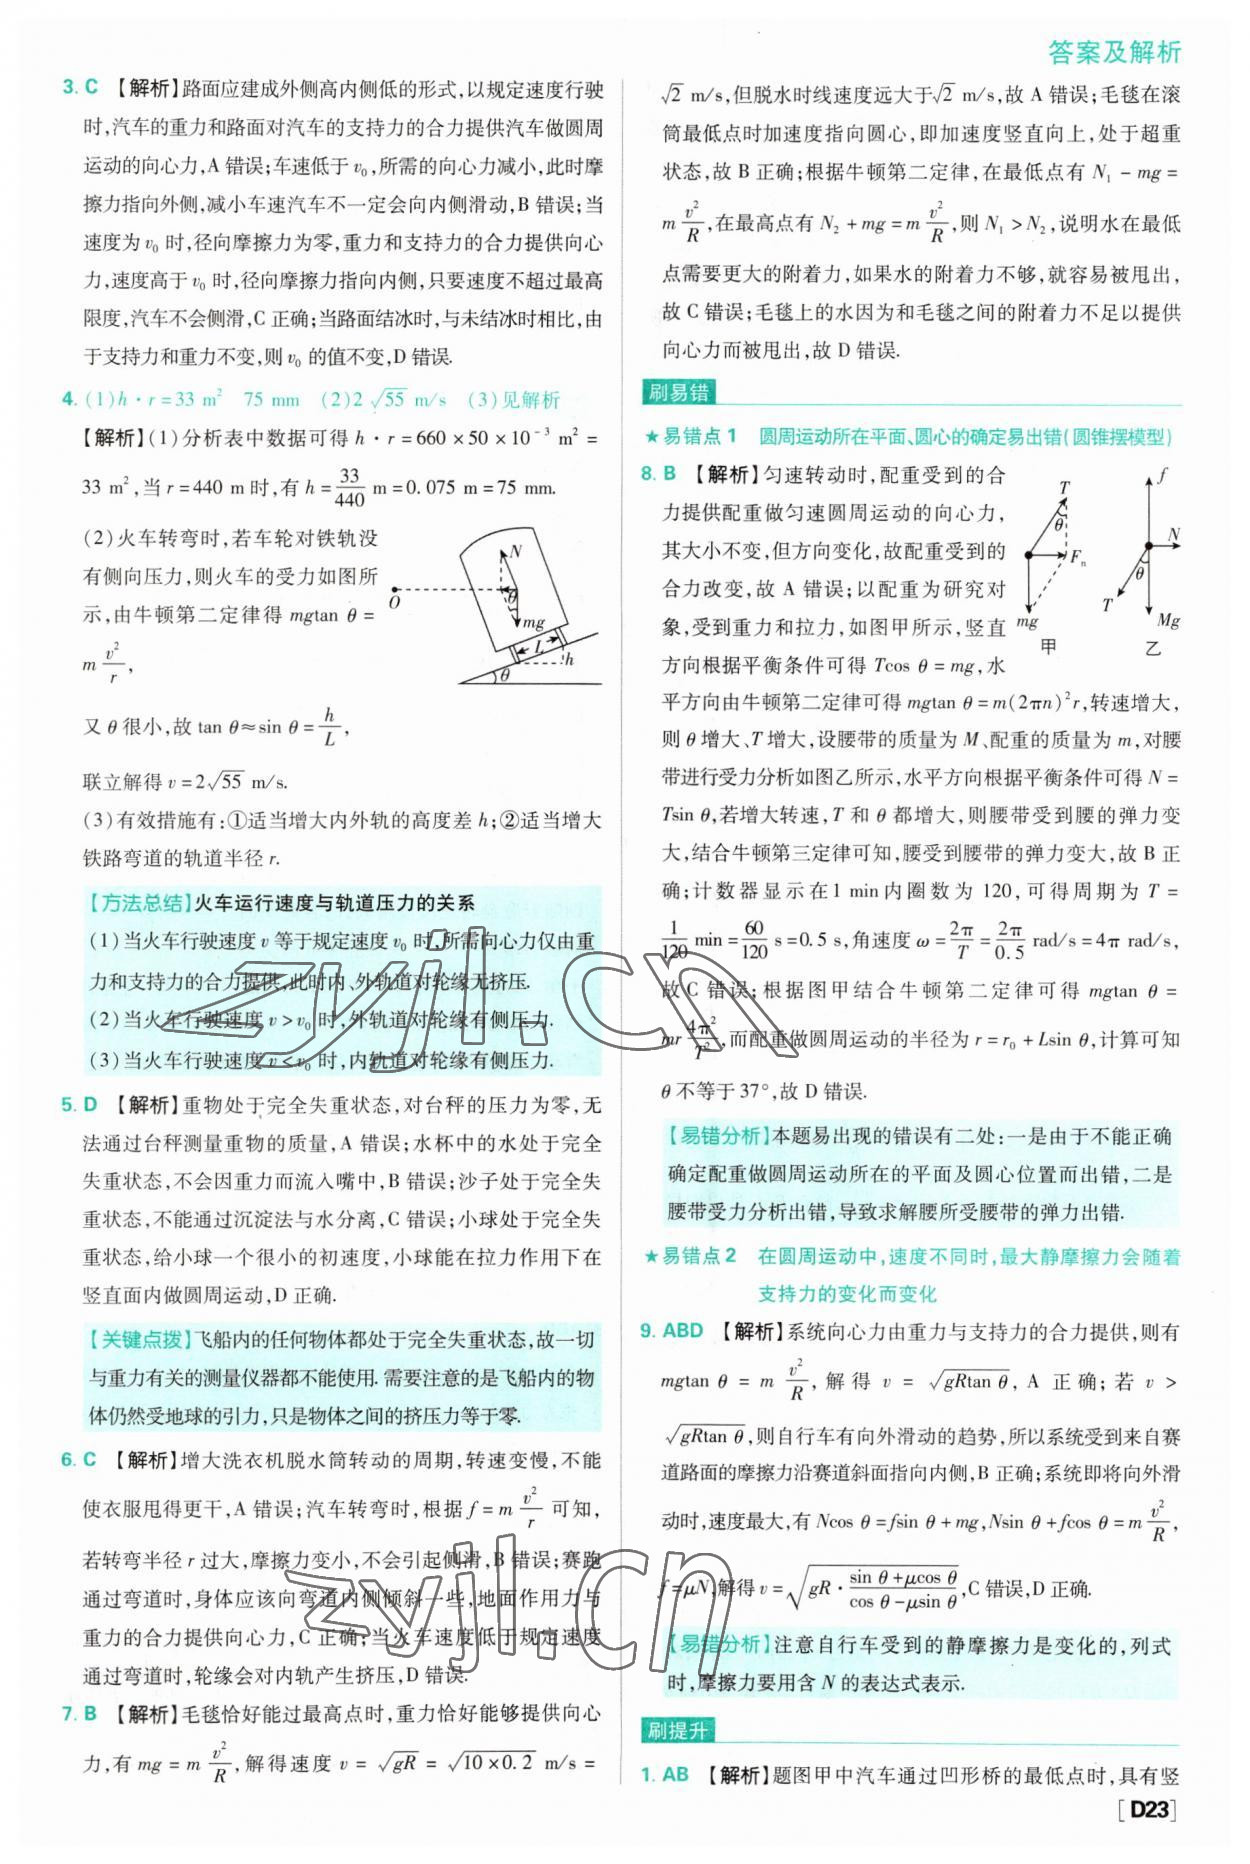 答案及解析
3. C 【解析】路面应建成外侧高内侧低的形式,以规定速度行驶
时,汽车的重力和路面对汽车的支持力的合力提供汽车做圆周
运动的向心力,A 错误;车速低于 v₀,所需的向心力减小,此时摩
擦力指向外侧,减小车速汽车不一定会向内侧滑动,B 错误;当
速度为 v₀ 时,径向摩擦力为零,重力和支持力的合力提供向心
力,速度高于 v₀ 时,径向摩擦力指向内侧,只要速度不超过最高
限度,汽车不会侧滑,C 正确;当路面结冰时,与未结冰时相比,由
于支持力和重力不变,则 v₀ 的值不变,D 错误.
4. (1)h·r=33 m² 75 mm (2)2√55 m/s (3)见解析
【解析】(1)分析表中数据可得 h·r=660×50×10⁻³ m²=
33 m²,当 r=440 m 时,有 h=33/440 m=0.075 m=75 mm.
(2)火车转弯时,若车轮对铁轨没
有侧向压力,则火车的受力如图所
示,由牛顿第二定律得 mgtan θ=
m v²/r,
O N θ mg L h θ
又 θ 很小,故 tan θ≈sin θ=h/L,
联立解得 v=2√55 m/s.
(3)有效措施有:①适当增大内外轨的高度差 h;②适当增大
铁路弯道的轨道半径 r.
【方法总结】火车运行速度与轨道压力的关系
(1)当火车行驶速度 v 等于规定速度 v₀ 时,所需向心力仅由重
力和支持力的合力提供,此时内、外轨道对轮缘无挤压.
(2)当火车行驶速度 v>v₀ 时,外轨道对轮缘有侧压力.
(3)当火车行驶速度 v<v₀ 时,内轨道对轮缘有侧压力.
5. D 【解析】重物处于完全失重状态,对台秤的压力为零,无
法通过台秤测量重物的质量,A 错误;水杯中的水处于完全
失重状态,不会因重力而流入嘴中,B 错误;沙子处于完全失
重状态,不能通过沉淀法与水分离,C 错误;小球处于完全失
重状态,给小球一个很小的初速度,小球能在拉力作用下在
竖直面内做圆周运动,D 正确.
【关键点拨】飞船内的任何物体都处于完全失重状态,故一切
与重力有关的测量仪器都不能使用. 需要注意的是飞船内的物
体仍然受地球的引力,只是物体之间的挤压力等于零.
6. C 【解析】增大洗衣机脱水筒转动的周期,转速变慢,不能
使衣服甩得更干,A 错误;汽车转弯时,根据 f=m v²/r 可知,
若转弯半径 r 过大,摩擦力变小,不会引起侧滑,B 错误;赛跑
通过弯道时,身体应该向弯道内侧倾斜一些,地面作用力与
重力的合力提供向心力,C 正确;当火车速度低于规定速度
通过弯道时,轮缘会对内轨产生挤压,D 错误.
7. B 【解析】毛毯恰好能过最高点时,重力恰好能够提供向心
力,有 mg=m v²/R,解得速度 v=√gR=√10×0.2 m/s=
√2 m/s,但脱水时线速度远大于√2 m/s,故 A 错误;毛毯在滚
筒最低点时加速度指向圆心,即加速度竖直向上,处于超重
状态,故 B 正确;根据牛顿第二定律,在最低点有 N₁-mg=
m v²/R,在最高点有 N₂+mg=m v²/R,则 N₁>N₂,说明水在最低
点需要更大的附着力,如果水的附着力不够,就容易被甩出,
故 C 错误;毛毯上的水因为和毛毯之间的附着力不足以提供
向心力而被甩出,故 D 错误.
刷易错
★易错点1 圆周运动所在平面、圆心的确定易出错(圆锥摆模型)
8. B 【解析】匀速转动时,配重受到的合
力提供配重做匀速圆周运动的向心力,
其大小不变,但方向变化,故配重受到的
合力改变,故 A 错误;以配重为研究对
象,受到重力和拉力,如图甲所示,竖直
方向根据平衡条件可得 Tcos θ=mg,水
T θ Fₙ mg 甲
f N θ T Mg 乙
平方向由牛顿第二定律可得 mgtan θ=m(2πn)²r,转速增大,
则 θ 增大、T 增大,设腰带的质量为 M、配重的质量为 m,对腰
带进行受力分析如图乙所示,水平方向根据平衡条件可得 N=
Tsin θ,若增大转速,T 和 θ 都增大,则腰带受到腰的弹力变
大,结合牛顿第三定律可知,腰受到腰带的弹力变大,故 B 正
确;计数器显示在 1 min 内圈数为 120,可得周期为 T=
1/120 min=60/120 s=0.5 s,角速度 ω=2π/T=2π/0.5 rad/s=4π rad/s,
故 C 错误;根据图甲结合牛顿第二定律可得 mgtan θ=
mr 4π²/T²,而配重做圆周运动的半径为 r=r₀+Lsin θ,计算可知
θ 不等于 37°,故 D 错误.
【易错分析】本题易出现的错误有二处:一是由于不能正确
确定配重做圆周运动所在的平面及圆心位置而出错,二是
腰带受力分析出错,导致求解腰所受腰带的弹力出错.
★易错点2 在圆周运动中,速度不同时,最大静摩擦力会随着
支持力的变化而变化
9. ABD 【解析】系统向心力由重力与支持力的合力提供,则有
mgtan θ=m v²/R,解得 v=√gRtan θ,A 正确;若 v>
√gRtan θ,则自行车有向外滑动的趋势,所以系统受到来自赛
道路面的摩擦力沿赛道斜面指向内侧,B 正确;系统即将向外滑
动时,速度最大,有 Ncos θ=fsin θ+mg,Nsin θ+fcos θ=m v²/R,
f=μN,解得 v=√(gR·(sin θ+μcos θ)/(cos θ-μsin θ)),C 错误,D 正确.
【易错分析】注意自行车受到的静摩擦力是变化的,列式
时,摩擦力要用含 N 的表达式表示.
刷提升
1. AB 【解析】题图甲中汽车通过凹形桥的最低点时,具有竖
[D23]
zyjl.cn
zyjl.cn